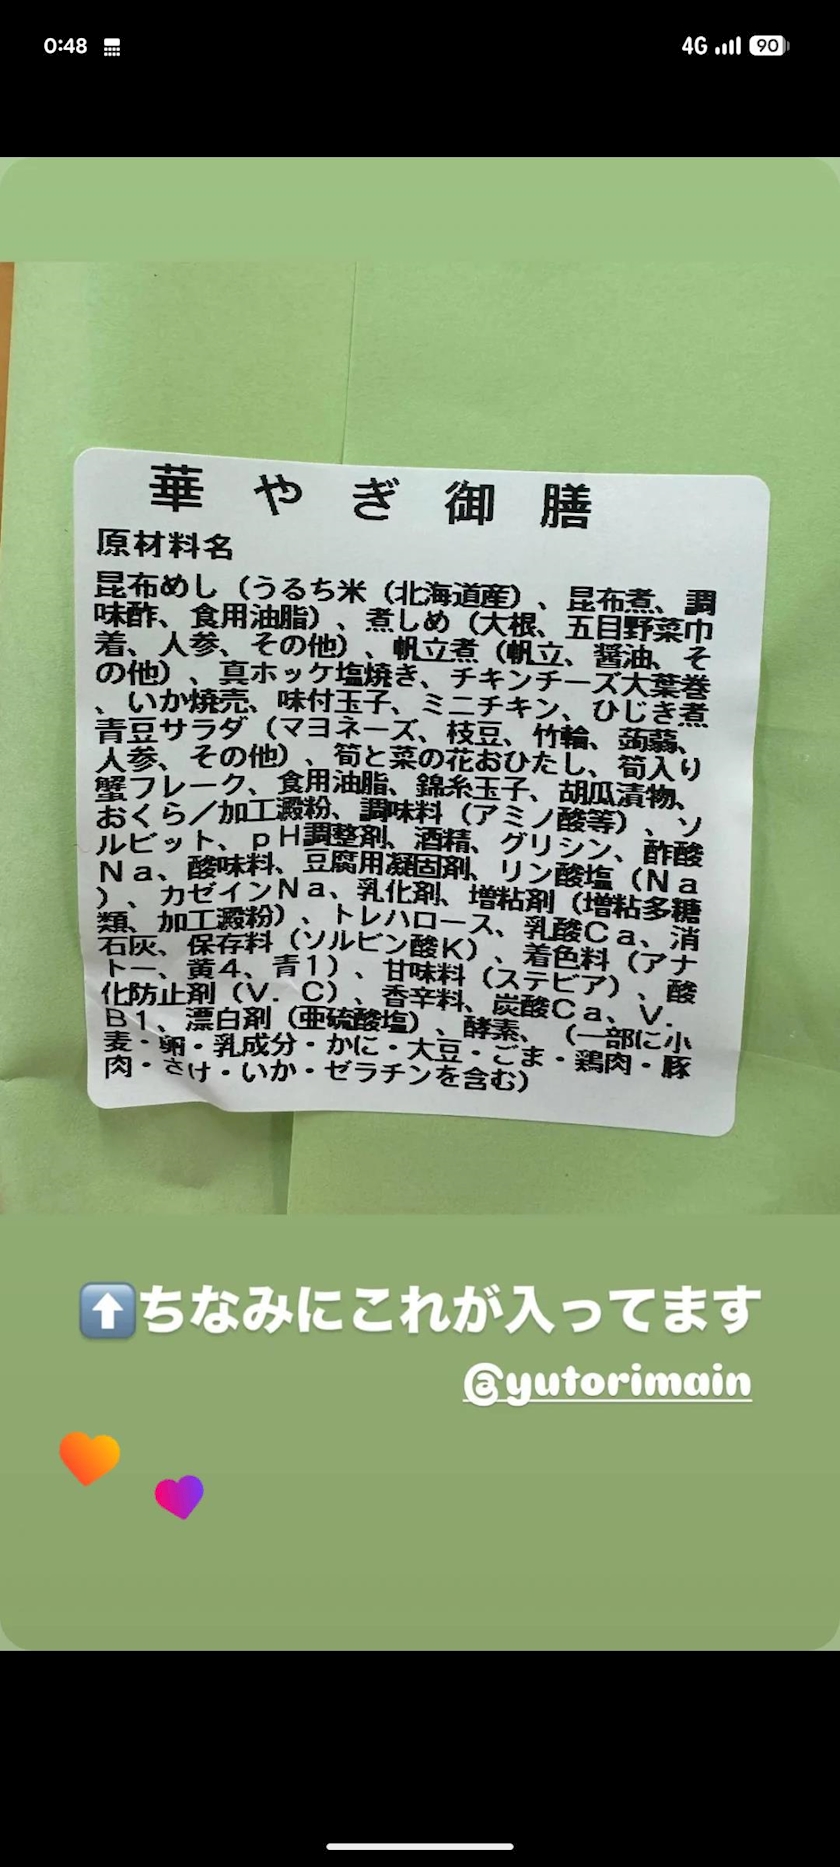 0:48
4G
90
華やぎ御膳
原材料名
昆布めし（うるち米（北海道産）、昆布煮、調
味酢、食用油脂）、煮しめ（大根、五目野菜巾
着、人参、その他）、帆立煮（帆立、醤油、そ
の他）、真ホッケ塩焼き、チキンチーズ大葉巻
、いか焼売、味付玉子、ミニチキン、ひじき煮
青豆サラダ（マヨネーズ、枝豆、竹輪、蒟蒻、
人参、その他）、筍と菜の花おひたし、筍入り
蟹フレーク、食用油脂、錦糸玉子、胡瓜漬物、
おくら／加工澱粉、調味料（アミノ酸等）、ソ
ルビット、ｐＨ調整剤、酒精、グリシン、酢酸
Ｎａ、酸味料、豆腐用凝固剤、リン酸塩（Ｎａ
）、カゼインＮａ、乳化剤、増粘剤（増粘多糖
類、加工澱粉）、トレハロース、乳酸Ｃａ、消
石灰、保存料（ソルビン酸Ｋ）、着色料（アナ
トー、黄４、青１）、甘味料（ステビア）、酸
化防止剤（Ｖ．Ｃ）、香辛料、炭酸Ｃａ、Ｖ．
Ｂ１、漂白剤（亜硫酸塩）、酵素、（一部に小
麦・卵・乳成分・かに・大豆・ごま・鶏肉・豚
肉・さけ・いか・ゼラチンを含む）
⬆️ちなみにこれが入ってます
@yutorimain